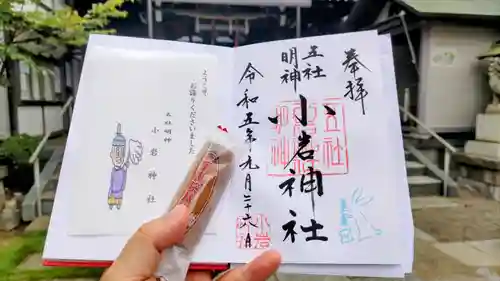 奉拝
五社
明神
小岩神社
令和五年九月二十六日
ようこそ
お詣りくださいました
五社明神
小岩神社